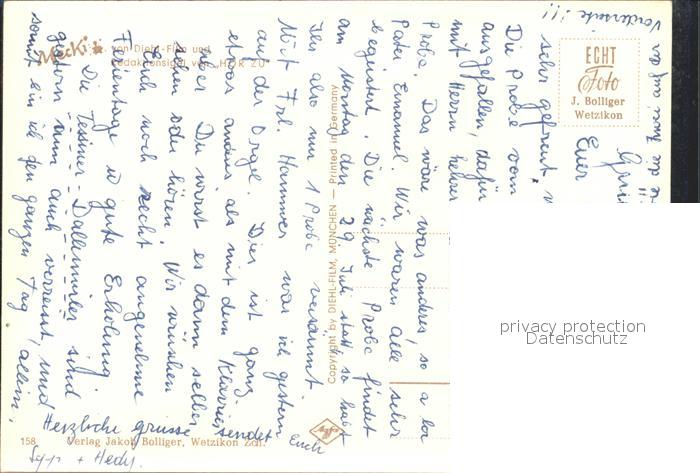 Vorderseite!!!
sehr gefreut,
Die Probe vom
ausgefallen, dafür
mit Herrn
Probe. Das wäre was anderes, so a la
Pater Emanuel. Wir waren alle sehr
begeistert. Die nächste Probe findet
am Montag den 29. Juli statt, so habt
Ihr also nur 1 Probe versäumt.
Mit Frl. Hammer war ich gestern
auf der Orgel. Dies ist ganz
etwas anderes als mit dem Klavier,
aber Du wirst es dann selber
sehen oder hören. Wir wünschen
Euch noch recht angenehme
Ferientage u gute Erholung.
Die Tessiner-Dallenwiler sind
gestern nun auch verreist, und
somit bin ich den ganzen Tag allein.
Herzliche Grüsse sendet Euch
+ Hedy.
Mecki
von Diehl-Film und
Redaktionsigel von „HÖR ZU“
ECHT
Foto
J. Bolliger
Wetzikon
Euer
Copyright by DIEHL-FILM, MÜNCHEN — Printed in Germany
Agfa
158 Verlag Jakob Bolliger, Wetzikon Zch.
privacy protection
Datenschutz